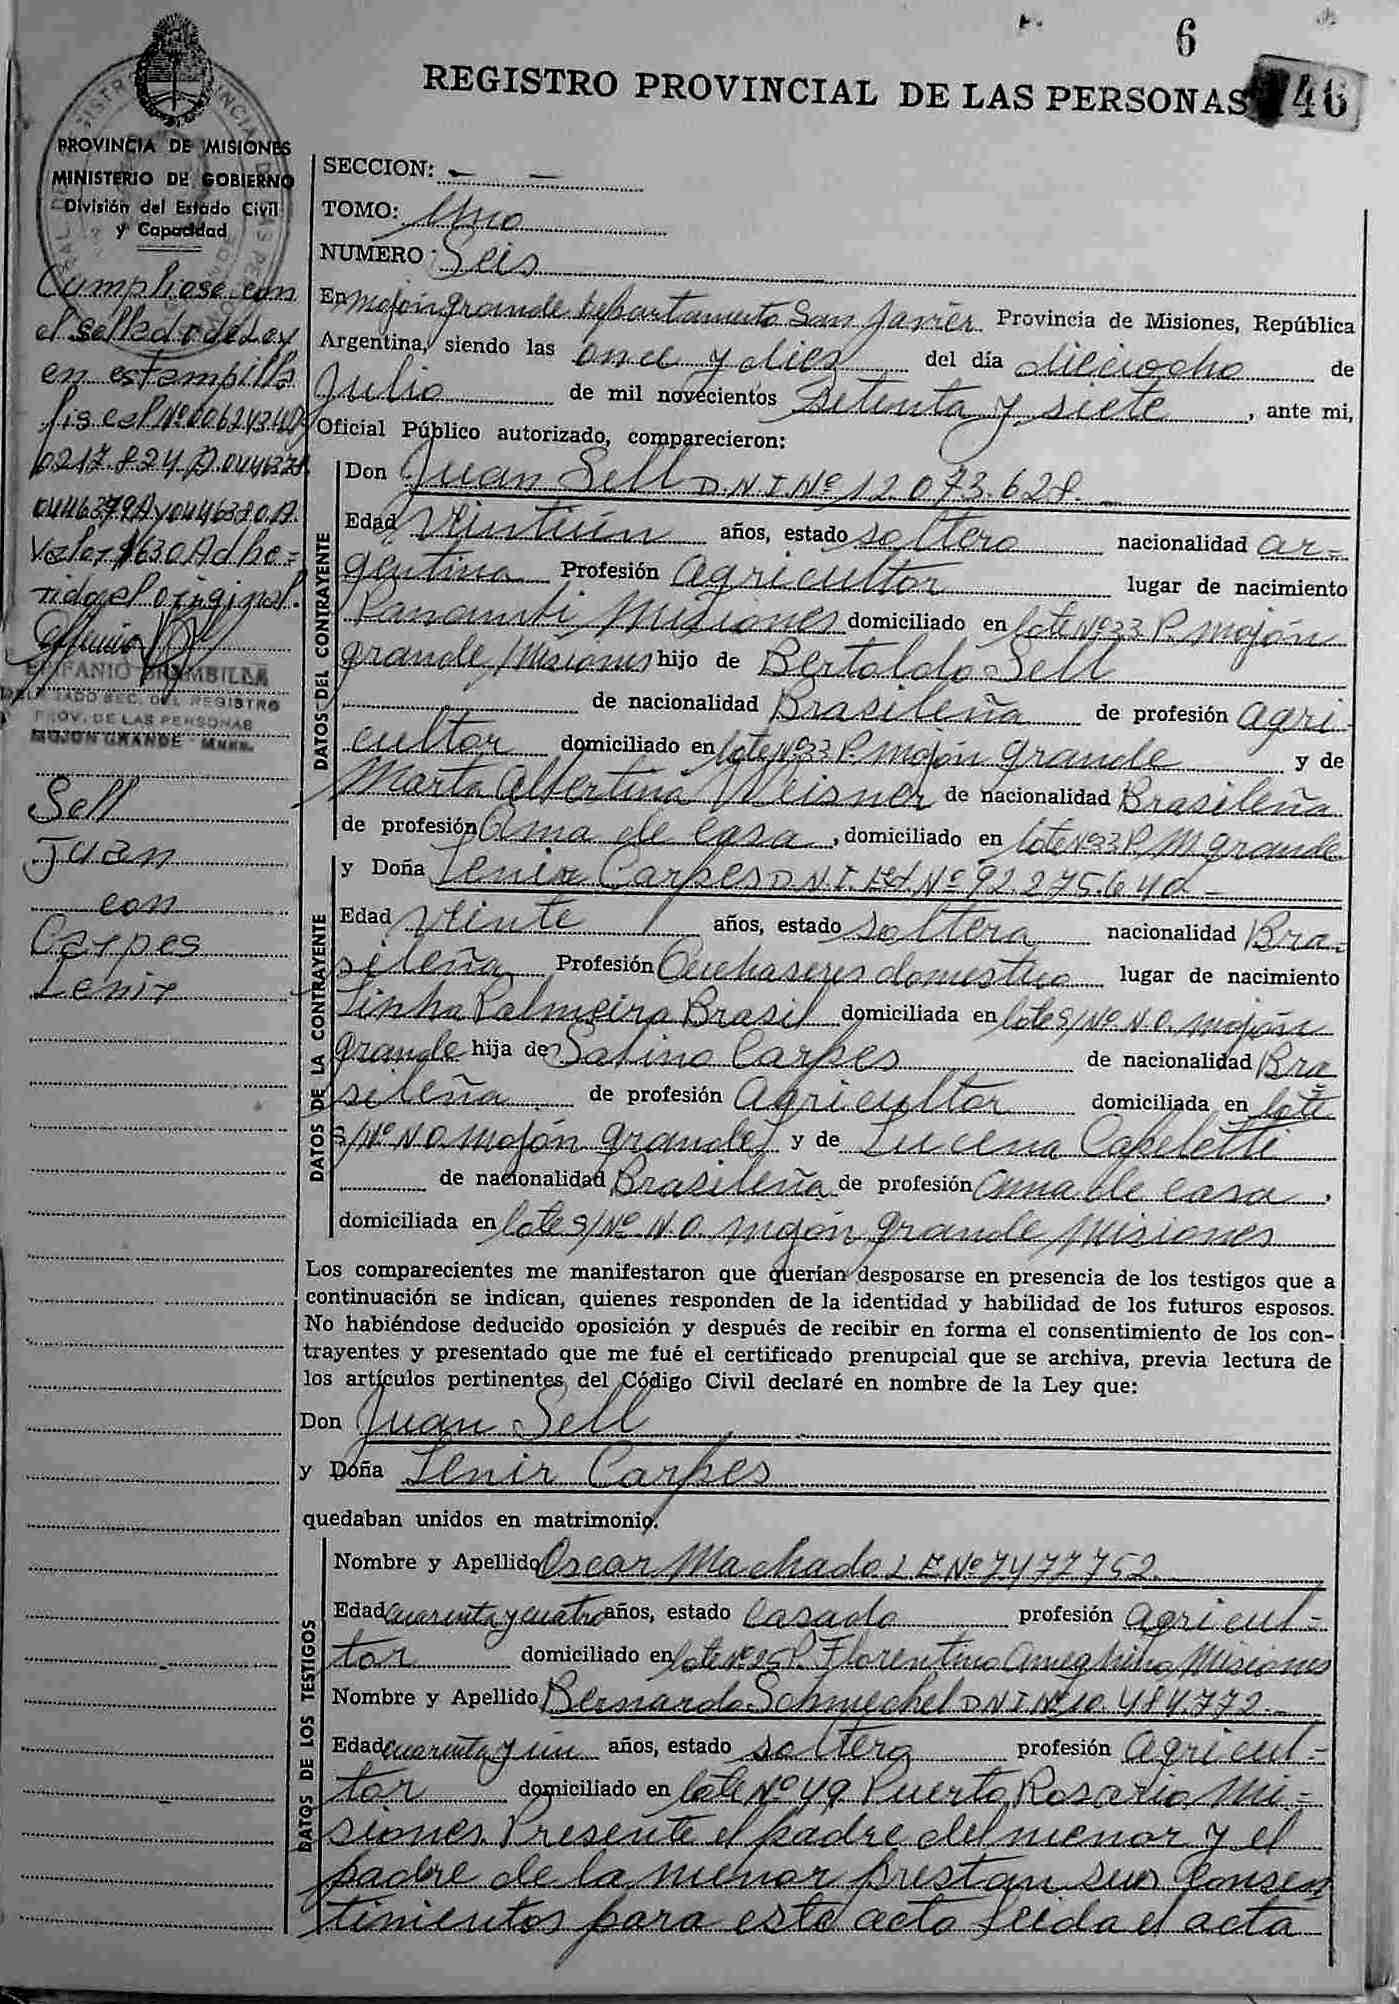 6
REGISTRO PROVINCIAL DE LAS PERSONAS 46
PROVINCIA DE MISIONES
MINISTERIO DE GOBIERNO
División del Estado Civil
y Capacidad
Cumpliose con
el sellado de Ley
en estampilla
fiscal Nº
0446379A y 0446380A.
Valor $630 Adhe=
rida el original.
EPIFANIO BRAMBILLA
DELEGADO SEC. DEL REGISTRO
PROV. DE LAS PERSONAS
MOJON GRANDE - Mnes.
Sell
Juan
con
Carpes
Lenir
SECCION: — —
TOMO: Uno
NUMERO: Seis
En Mojón grande Departamento San Javier Provincia de Misiones, República
Argentina, siendo las once y diez del día dieciocho de
Julio de mil novecientos Setenta y siete, ante mi,
Oficial Público autorizado, comparecieron:
DATOS DEL CONTRAYENTE
Don Juan Sell D.N.I Nº 12.073.628.
Edad Veintiún años, estado soltero nacionalidad ar=
gentina Profesión Agricultor lugar de nacimiento
Panambi Misiones domiciliado en lote Nº 33 P. Mojón
grande Misiones hijo de Bertoldo Sell
de nacionalidad Brasileña de profesión Agri-
cultor domiciliado en lote Nº 33 P. Mojón grande y de
Marta Albertina Weisner de nacionalidad Brasileña
de profesión Ama de Casa, domiciliado en lote Nº 33 P. M grande
DATOS DE LA CONTRAYENTE
y Doña Lenir Carpes D.N.I. Ext Nº 92.275.640 -
Edad Veinte años, estado soltera nacionalidad Bra=
sileña Profesión Quehaseres domestico lugar de nacimiento
Linha Palmeira Brasil domiciliada en lote S/Nº N.O. Mojón
grande hija de Sabino Carpes de nacionalidad Bra=
sileña de profesión Agricultor domiciliada en lote
S/Nº N.O. Mojón grande y de Lucena Capeletti
de nacionalidad Brasileña de profesión Ama de casa,
domiciliada en lote S/Nº N.O. Mojón grande Misiones
Los comparecientes me manifestaron que querían desposarse en presencia de los testigos que a
continuación se indican, quienes responden de la identidad y habilidad de los futuros esposos.
No habiéndose deducido oposición y después de recibir en forma el consentimiento de los con-
trayentes y presentado que me fué el certificado prenupcial que se archiva, previa lectura de
los artículos pertinentes del Código Civil declaré en nombre de la Ley que:
Don Juan Sell
y Doña Lenir Carpes
quedaban unidos en matrimonio.
DATOS DE LOS TESTIGOS
Nombre y Apellido Oscar Machado L E Nº 7477752.
Edad Cuarenta y cuatro años, estado Casado profesión Agricul=
tor domiciliado en lote Nº 25 P. Florentino Ameghino Misiones
Nombre y Apellido Bernardo Schmechel D N I Nº 10.484.772.-
Edad cuarenta y un años, estado soltero profesión Agricul=
tor domiciliado en lote Nº 49 Puerto Rosario Mi=
siones. Presente el padre del menor y el
padre de la menor prestan sus Consen
timientos para este acto Leida el acta